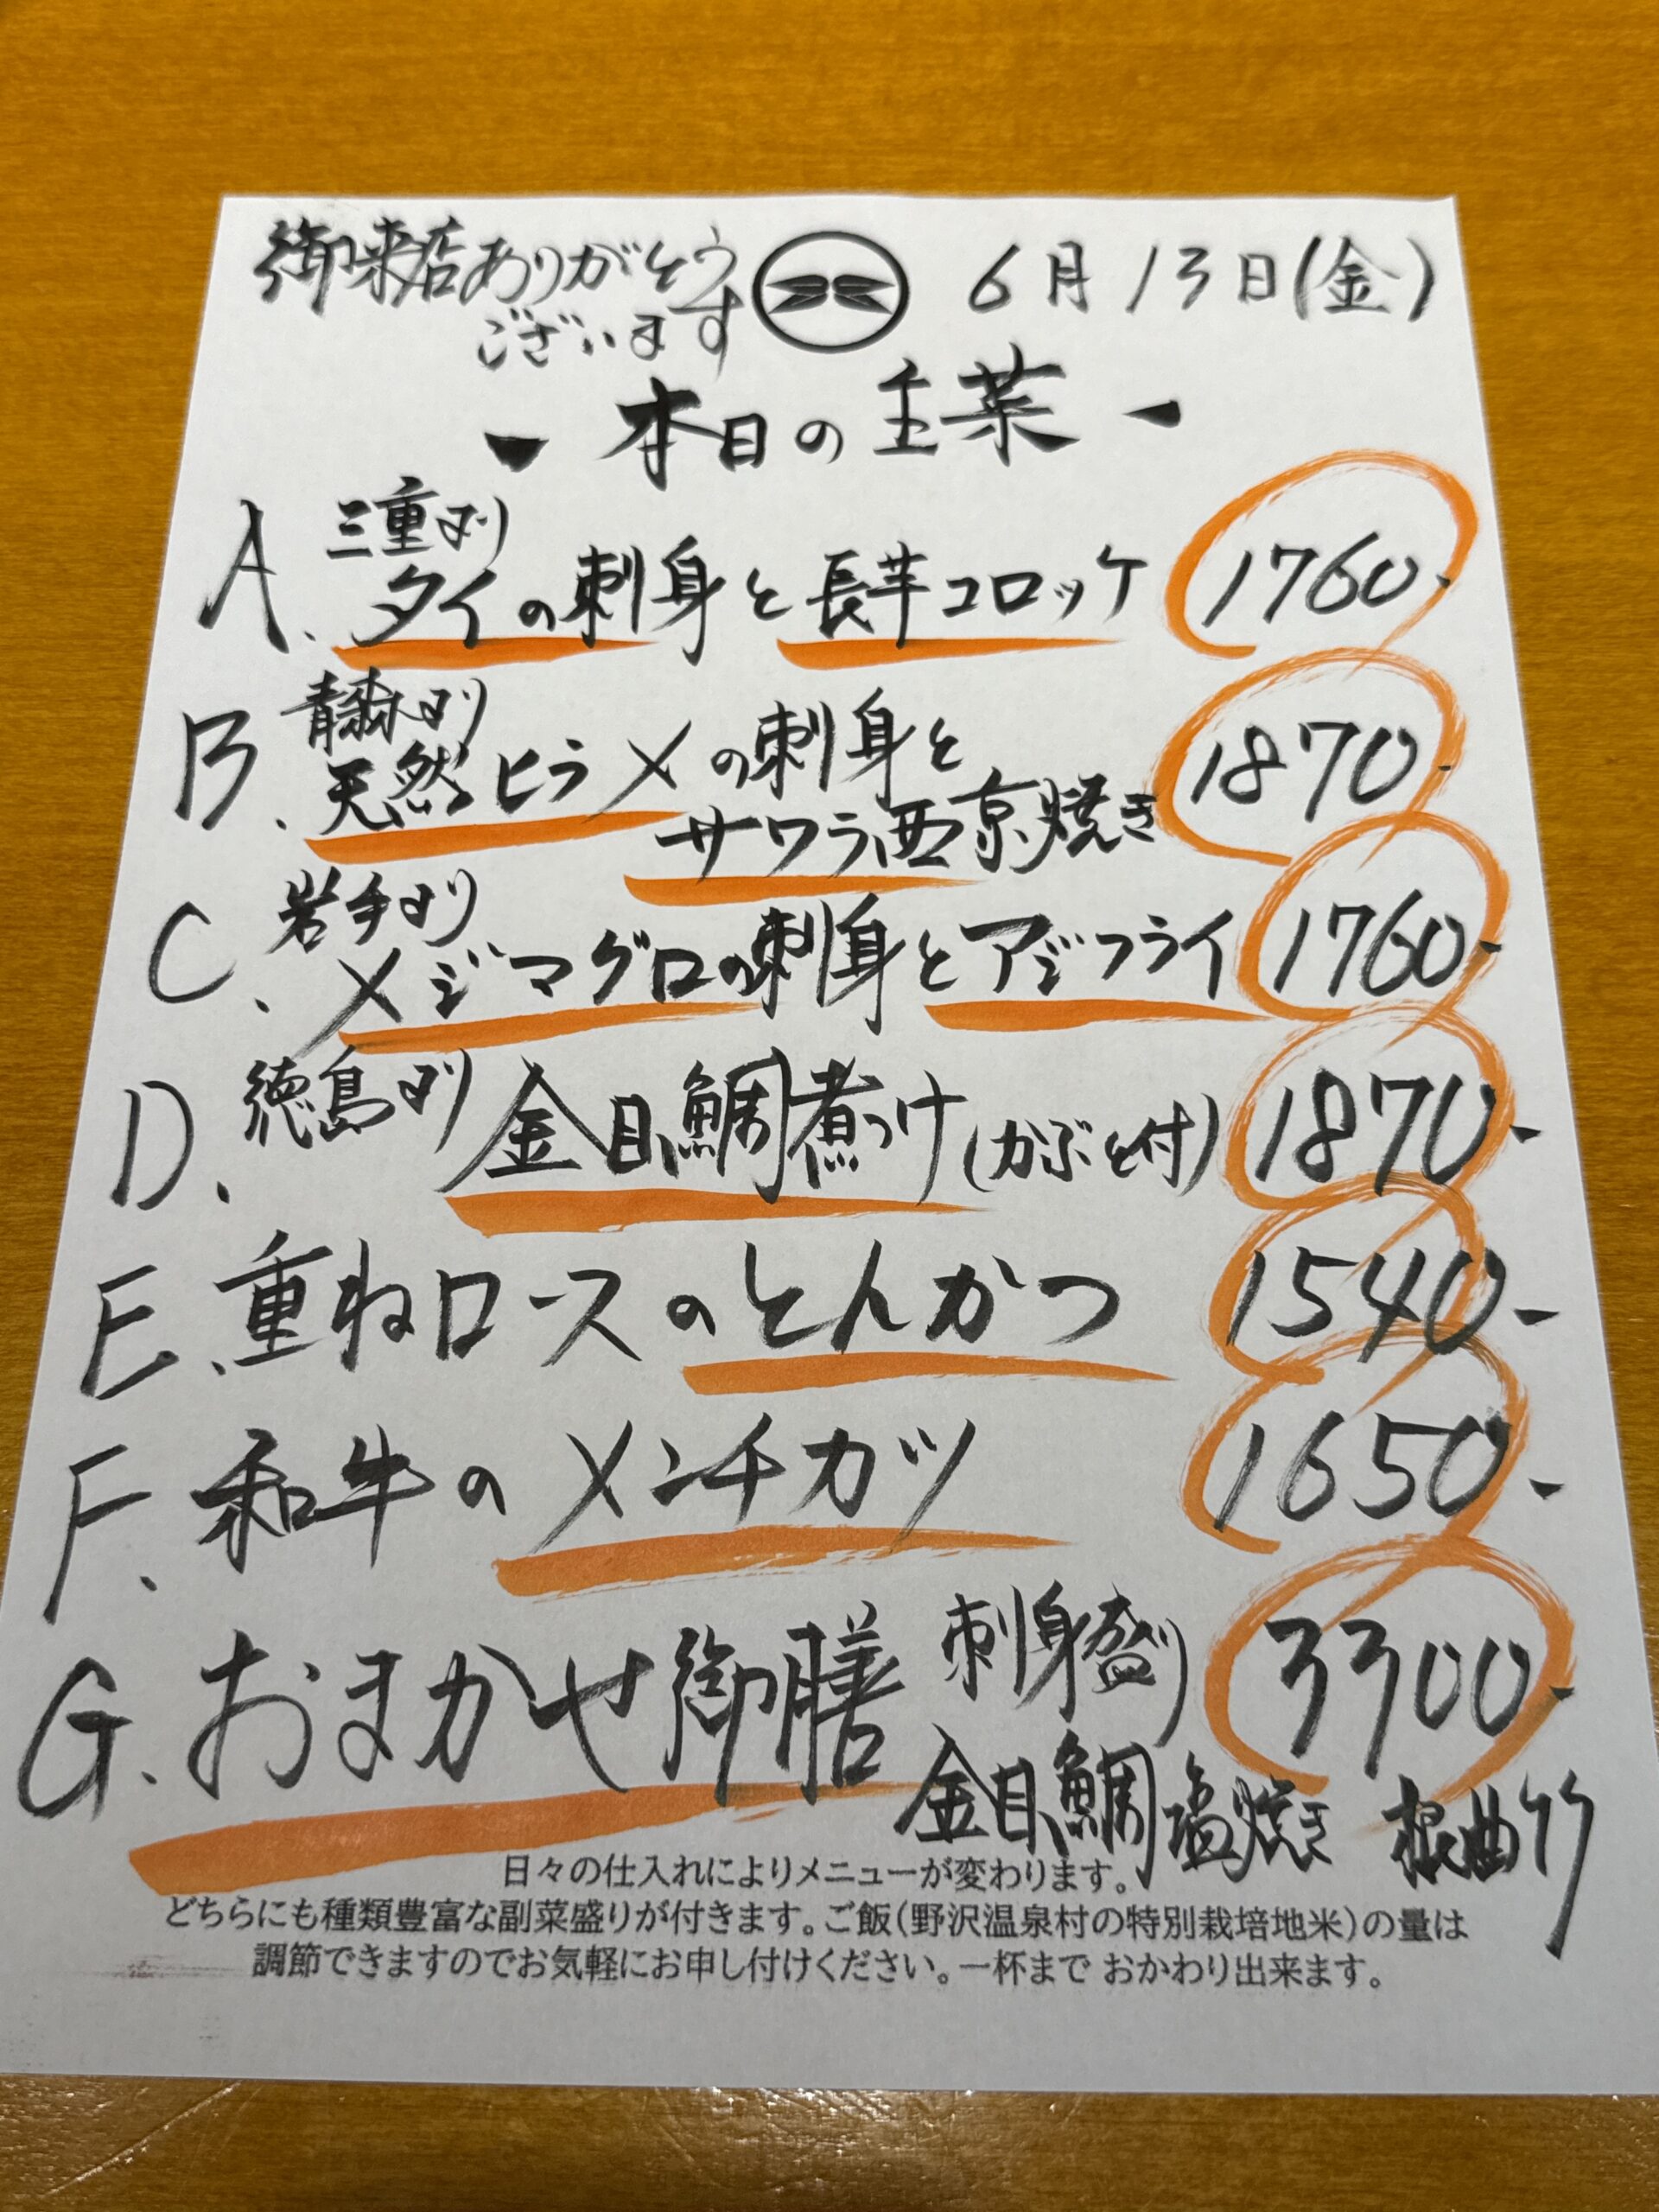 御来店ありがとう
ございます
6月13日(金)
- 本日の主菜 -
A. 三重より
タイの刺身と長芋コロッケ 1760-
B. 青森より
天然ヒラメの刺身と 1870-
サワラ西京焼き
C. 岩手より
メジマグロの刺身とアジフライ 1760-
D. 徳島より 金目鯛煮つけ(かぶと付) 1870-
E. 重ねロースのとんかつ 1540-
F. 和牛のメンチカツ 1650-
G. おまかせ御膳 刺身盛り 3300-
金目鯛塩焼き 根曲竹
日々の仕入れによりメニューが変わります。
どちらにも種類豊富な副菜盛りが付きます。ご飯(野沢温泉村の特別栽培地米)の量は
調節できますのでお気軽にお申し付けください。一杯まで おかわり出来ます。